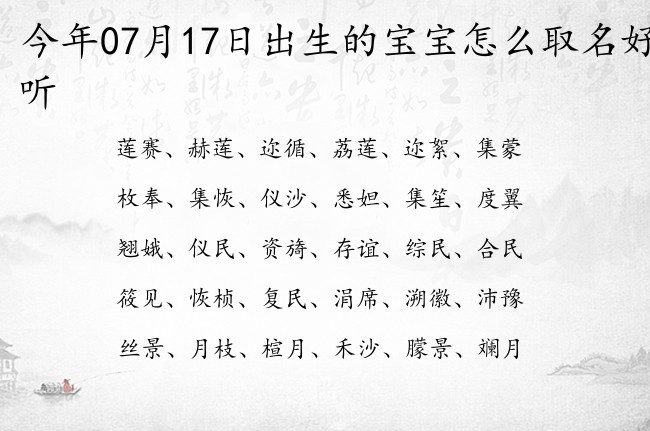 今年07月17日出生的宝宝怎么取名好
听
莲赛、赫莲、迩循、荔莲、迩絮、集蒙
枚奉、集恢、仪沙、悉妲、集笙、度翼
翘娥、仪民、资旖、存谊、综民、合民
筱见、恢桢、复民、涓席、溯徽、沛豫
丝景、月枝、楦月、禾沙、朦景、斓月